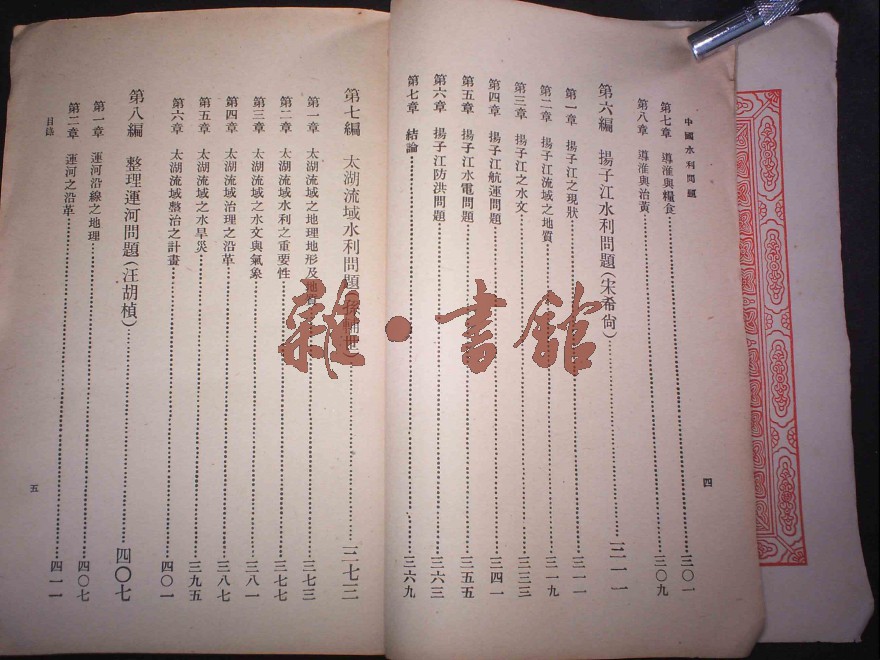 中國水利問題
第七章 導淮與糧食 三〇一
第八章 導淮與治黃 三〇九
第六編 揚子江水利問題(宋希尙) 三一一
第一章 揚子江之現狀 三一一
第二章 揚子江流域之地質 三一九
第三章 揚子江之水文 三三三
第四章 揚子江航運問題 三四一
第五章 揚子江水電問題 三五五
第六章 揚子江防洪問題 三六三
第七章 結論 三六九
四
第七編 太湖流域水利問題(孫輔世) 三七三
第一章 太湖流域之地理地形及地質 三七三
第二章 太湖流域水利之重要性 三七七
第三章 太湖流域之水文與氣象 三八一
第四章 太湖流域治理之沿革 三八七
第五章 太湖流域之水旱災 三九五
第六章 太湖流域整治之計畫 四〇一
第八編 整理運河問題(汪胡楨) 四〇七
第一章 運河沿線之地理 四〇七
第二章 運河之沿革 四一一
目錄
五
雜·書館